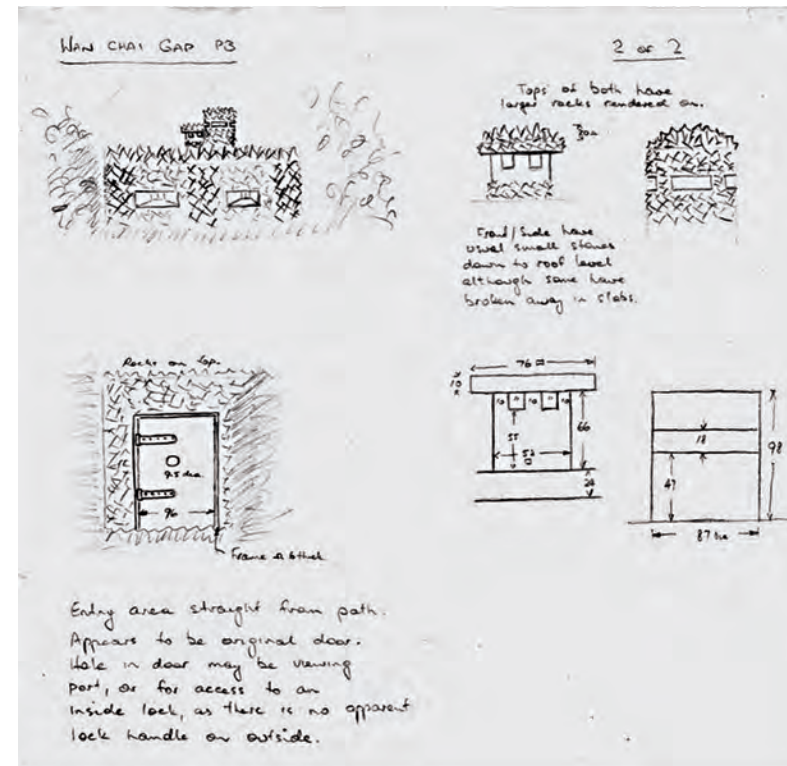 WAN CHAI GAP P3
2 of 2
Tops of both have
larger rocks rendered on.
Front/Side have
usual small stones
down to roof level
although some have
broken away in slabs.
Rocks on top.
9.5 dia
96
Frame
76
10
66
55
52
24
18
98
47
87 dia
Entry area straight from path.
Appears to be original door.
Hole in door may be viewing
port, or for access to an
inside lock, as there is no apparent
lock handle on outside.